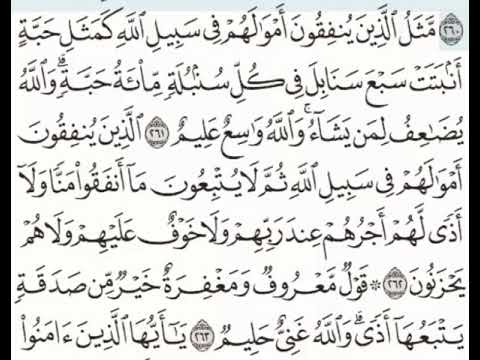 ٢٦٠ مَّثَلُ ٱلَّذِينَ يُنفِقُونَ أَمْوَٰلَهُمْ فِى سَبِيلِ ٱللَّهِ كَمَثَلِ حَبَّةٍ
أَنۢبَتَتْ سَبْعَ سَنَابِلَ فِى كُلِّ سُنۢبُلَةٍ مِّا۟ئَةُ حَبَّةٍ ۗ وَٱللَّهُ
يُضَٰعِفُ لِمَن يَشَآءُ ۗ وَٱللَّهُ وَٰسِعٌ عَلِيمٌ ٢٦١ ٱلَّذِينَ يُنفِقُونَ
أَمْوَٰلَهُمْ فِى سَبِيلِ ٱللَّهِ ثُمَّ لَا يُتْبِعُونَ مَآ أَنفَقُوا۟ مَنًّا وَلَآ
أَذًى لَّهُمْ أَجْرُهُمْ عِندَ رَبِّهِمْ وَلَا خَوْفٌ عَلَيْهِمْ وَلَا هُمْ
يَحْزَنُونَ ٢٦٢ ۞ قَوْلٌ مَّعْرُوفٌ وَمَغْفِرَةٌ خَيْرٌ مِّن صَدَقَةٍ
يَتْبَعُهَآ أَذًى ۗ وَٱللَّهُ غَنِىٌّ حَلِيمٌ ٢٦٣ يَٰٓأَيُّهَا ٱلَّذِينَ ءَامَنُوا۟